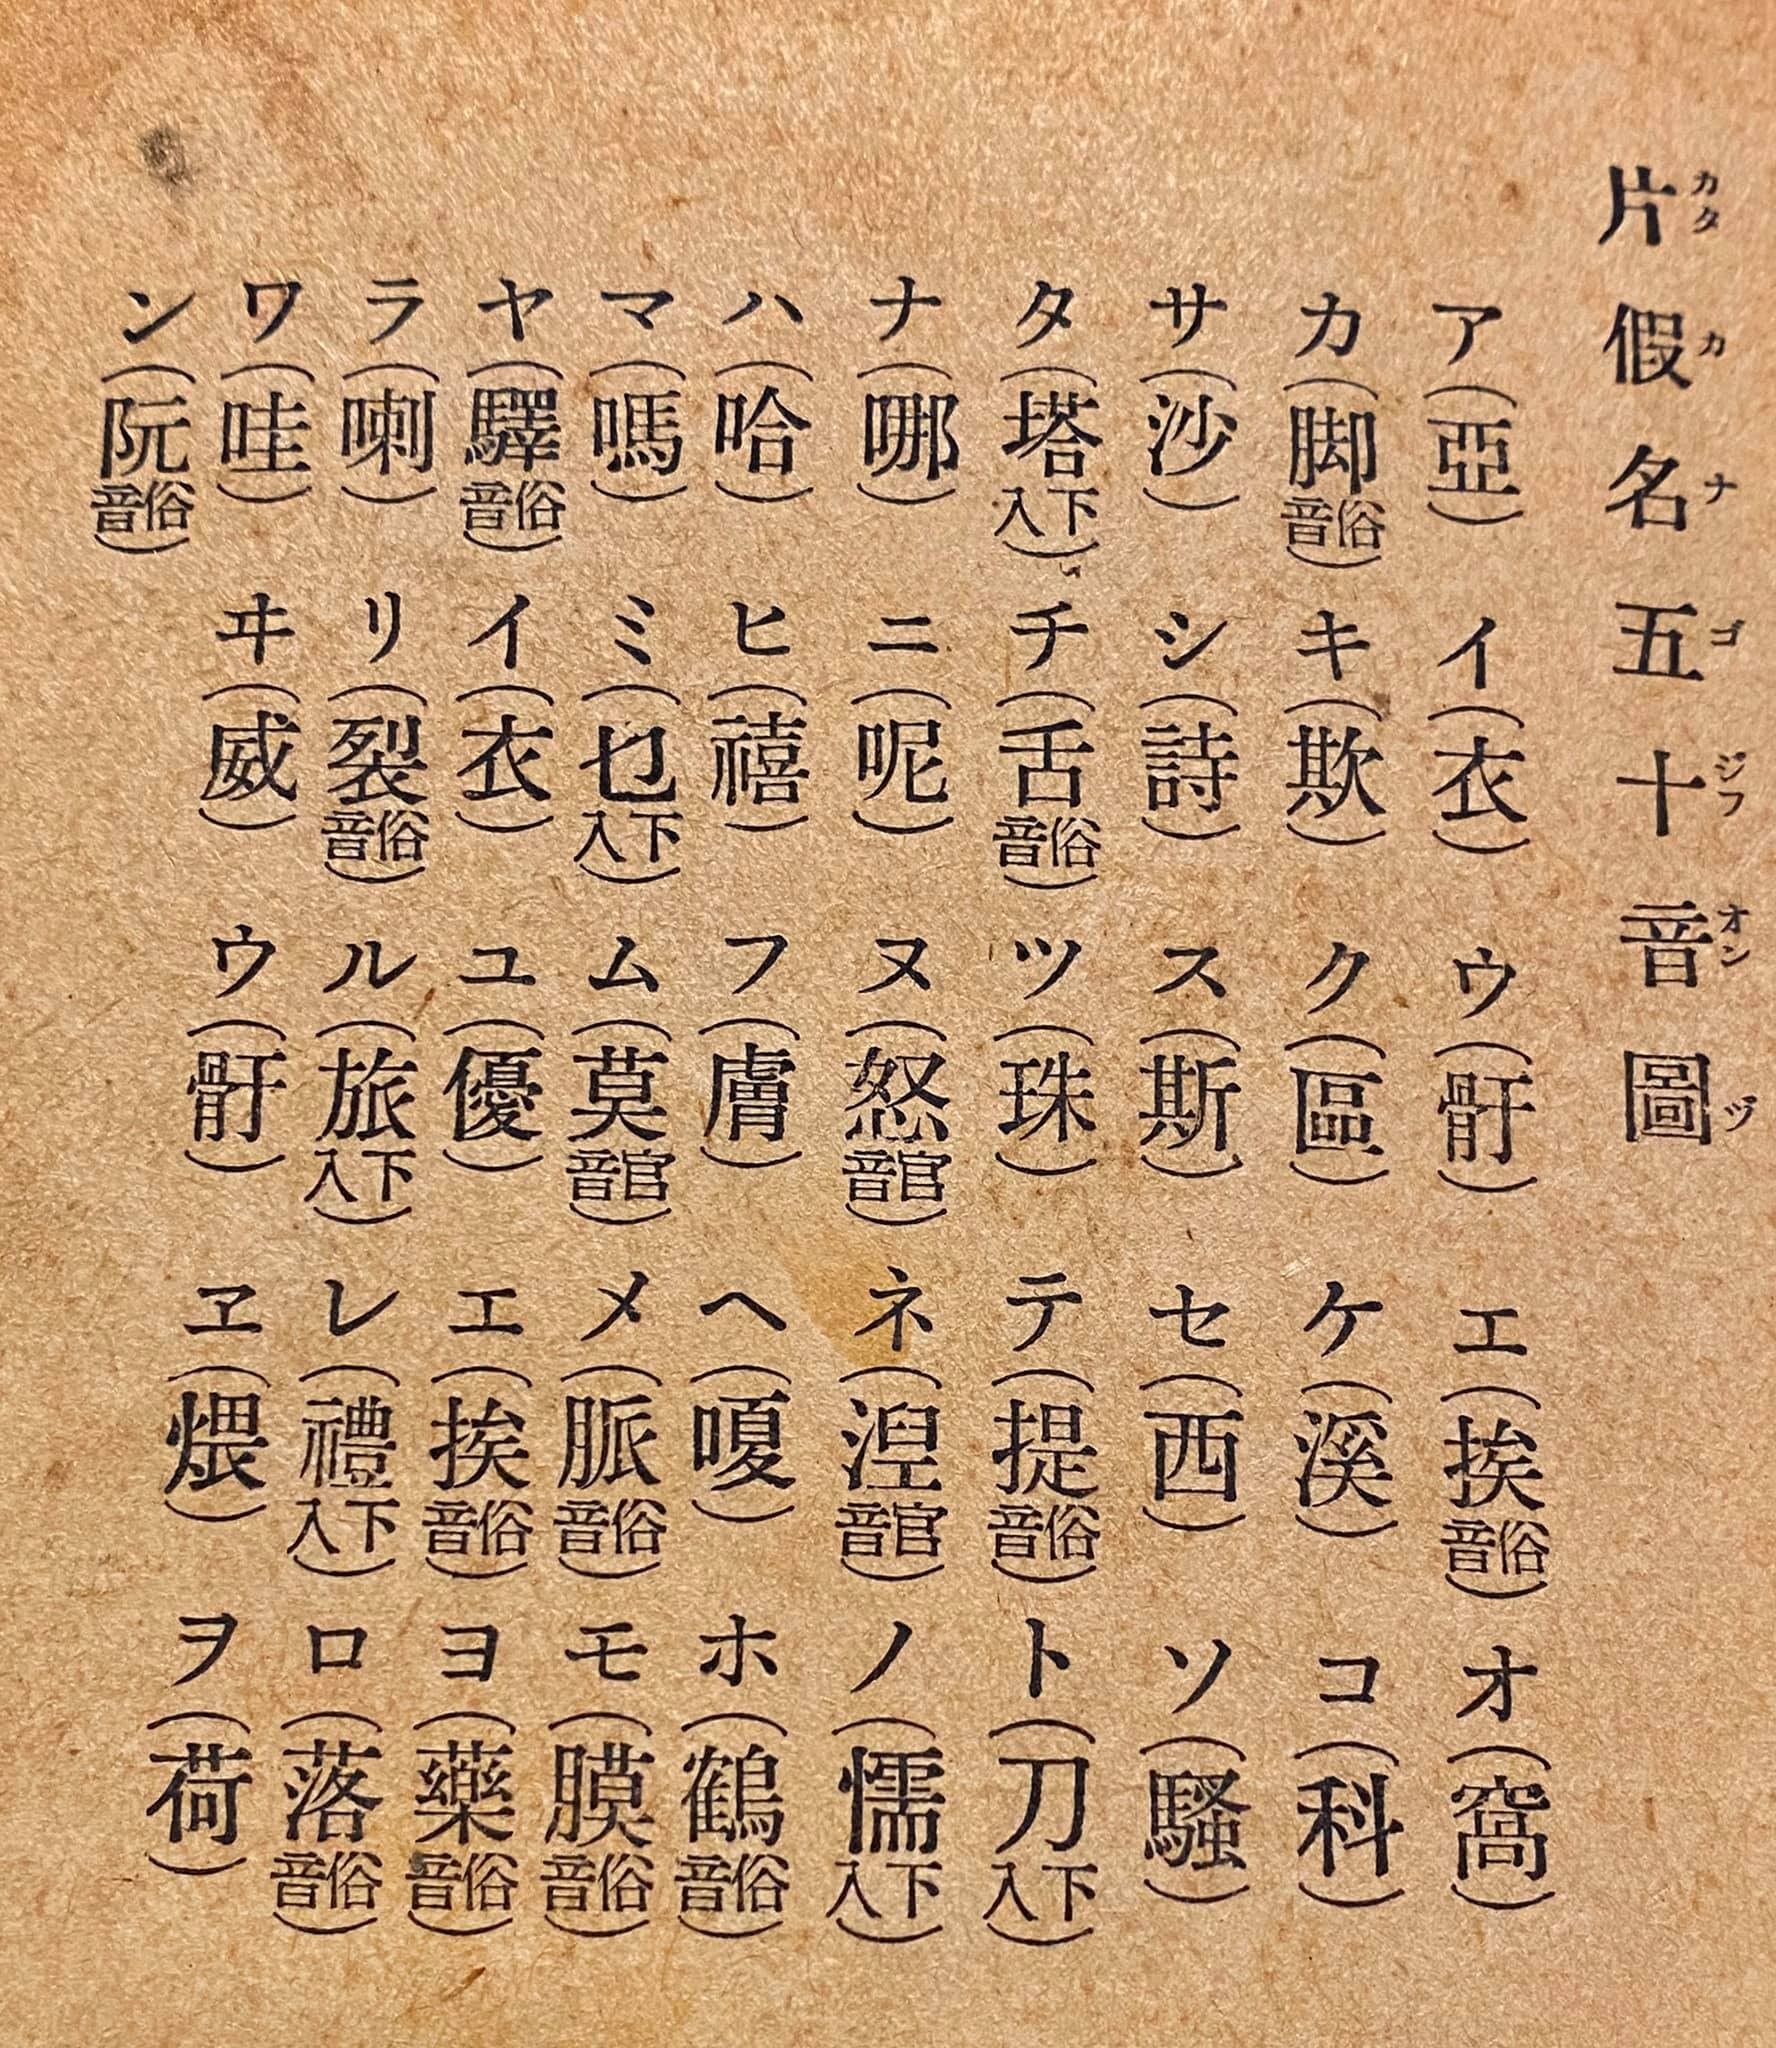 片假名五十音圖
カタカナゴジフオンヅ
ア(亞)イ(衣)ウ(骬)エ(挨俗音)オ(窩)
カ(脚俗音)キ(欺)ク(區)ケ(溪)コ(科)
サ(沙)シ(詩)ス(斯)セ(西)ソ(騷)
タ(塔下入)チ(舌俗音)ツ(珠)テ(提俗音)ト(刀下入)
ナ(哪)ニ(呢)ヌ(怒官音)ネ(湼官音)ノ(懦下入)
ハ(哈)ヒ(禧)フ(膚)ヘ(嗄)ホ(鶴俗音)
マ(嗎)ミ(乜下入)ム(莫官音)メ(脈俗音)モ(膜俗音)
ヤ(驛俗音)イ(衣)ユ(優)エ(挨俗音)ヨ(藥俗音)
ラ(喇)リ(裂俗音)ル(旅下入)レ(禮下入)ロ(落俗音)
ワ(哇)ヰ(威)ウ(骬)ヱ(煨)ヲ(荷)
ン(阮俗音)